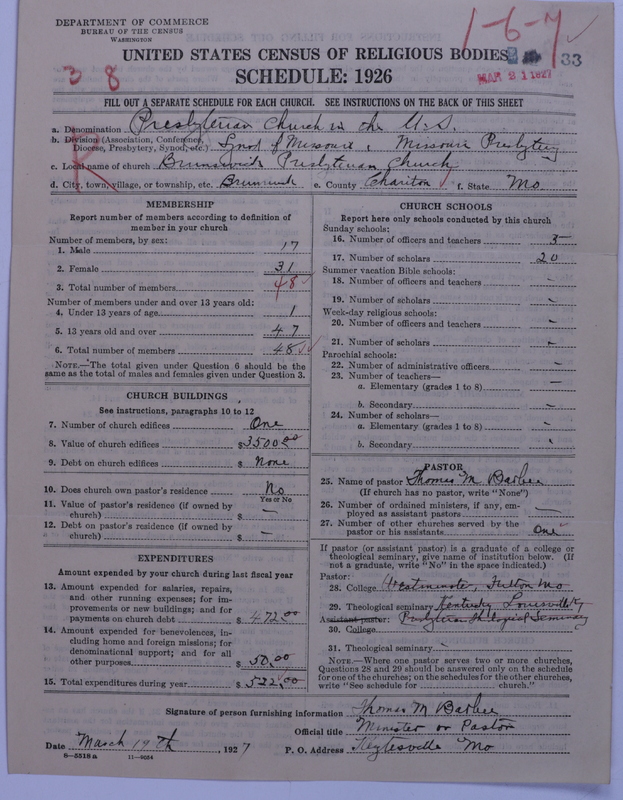 DEPARTMENT OF COMMERCE
BUREAU OF THE CENSUS
WASHINGTON
1-6-7
33
MAR 21 1927
UNITED STATES CENSUS OF RELIGIOUS BODIES
3 8
SCHEDULE: 1926
FILL OUT A SEPARATE SCHEDULE FOR EACH CHURCH. SEE INSTRUCTIONS ON THE BACK OF THIS SHEET
a. Denomination Presbyterian Church in the U.S.
b. Division (Association, Conference, Diocese, Presbytery, Synod, etc.) Synod of Missouri, Missouri Presbytery
c. Local name of church Brunswick Presbyterian Church
R
d. City, town, village, or township, etc. Brunswick e. County Chariton f. State Mo
MEMBERSHIP
Report number of members according to definition of
member in your church
Number of members, by sex:
1. Male 17
2. Female 31
3. Total number of members 48
Number of members under and over 13 years old:
4. Under 13 years of age 1
5. 13 years old and over 47
6. Total number of members 48
NOTE.—The total given under Question 6 should be the
same as the total of males and females given under Question 3.
CHURCH BUILDINGS
See instructions, paragraphs 10 to 12
7. Number of church edifices One
8. Value of church edifices $3500.00
9. Debt on church edifices $ None
10. Does church own pastor's residence No
Yes or No
11. Value of pastor's residence (if owned by
church) $ —
12. Debt on pastor's residence (if owned by
church) $ —
EXPENDITURES
Amount expended by your church during last fiscal year
13. Amount expended for salaries, repairs,
and other running expenses; for im-
provements or new buildings; and for
payments on church debt $ 472.00
14. Amount expended for benevolences, in-
cluding home and foreign missions; for
denominational support; and for all
other purposes $ 50.00
15. Total expenditures during year $ 522.00
CHURCH SCHOOLS
Report here only schools conducted by this church
Sunday schools:
16. Number of officers and teachers 5
17. Number of scholars 20
Summer vacation Bible schools:
18. Number of officers and teachers -
19. Number of scholars -
Week-day religious schools:
20. Number of officers and teachers -
21. Number of scholars -
Parochial schools:
22. Number of administrative officers -
23. Number of teachers—
a. Elementary (grades 1 to 8) -
b. Secondary -
24. Number of scholars—
a. Elementary (grades 1 to 8) -
b. Secondary -
PASTOR
25. Name of pastor Thomas M. Barbee
(If church has no pastor, write "None")
26. Number of ordained ministers, if any, em-
ployed as assistant pastors —
27. Number of other churches served by the
pastor or his assistants One
If pastor (or assistant pastor) is a graduate of a college or
theological seminary, give name of institution below. (If
not a graduate, write "No" in the space indicated.)
Pastor:
28. College Westminster, Fulton Mo
29. Theological seminary Kentucky Louisville Ky
Assistant pastor: Presbyterian Theological Seminary
30. College
31. Theological seminary -
NOTE.—Where one pastor serves two or more churches,
Questions 28 and 29 should be answered only on the schedule
for one of the churches; on the schedules for the other churches,
write "See schedule for church."
Signature of person furnishing information Thomas M Barbee
Official title Minister or Pastor
Date March 19th, 1927 P. O. Address Keytesville Mo
8—5518 a 11—9034